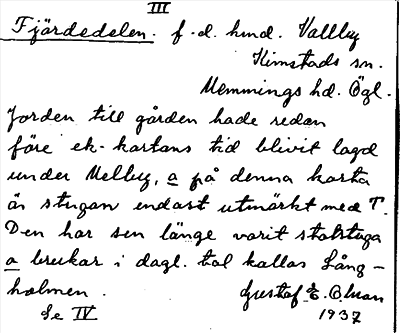 III
Fjärdedelen. f.d. hmd. Vallby
Kimstads sn.
Memmings hd. Ögl.
Jorden till gården hade redan
före ek-kartans tid blivit lagd
under Melby, a på denna karta
är stugan endast utmärkt med T.
Den har sen länge varit statstuga
a brukar i dagl. tal kallas Lång-
holmen.
Gustaf E. Olman
Se IV
1937